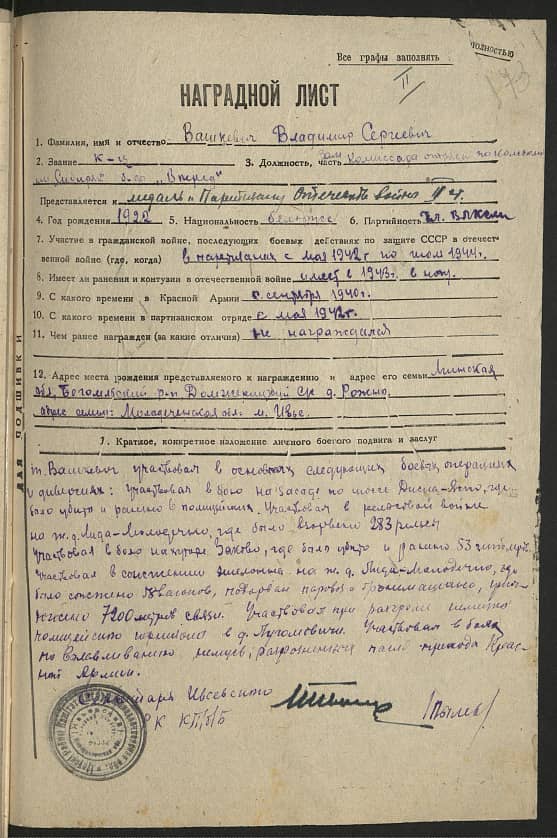 Все графы заполнять
полностью
II
173
НАГРАДНОЙ ЛИСТ
1. Фамилия, имя и отчество Вашкевич Владимир Сергеевич
2. Звание к-ц 3. Должность, часть зам комиссара
бр. „Вперед“
Представляется к медаль „Партизану Отечеств войны“ II ст.
4. Год рождения 1922 5. Национальность белорусс 6. Партийность чл. ВЛКСМ
7. Участие в гражданской войне, последующих боевых действиях по защите СССР в отечест
венной войне (где, когда) в партизанах с мая 1942г по июль 1944г.
8. Имеет ли ранения и контузии в отечественной войне имеет в 1943г. в ногу.
9. С какого времени в Красной Армии с сентября 1940г.
10. С какого времени в партизанском отряде с мая 1942г.
11. Чем ранее награжден (за какие отличия) не награждался
12. Адрес места рождения представляемого к награждению и адрес его семьи Минская
обл, р-н с/с д. Рожно,
адрес семьи: Молодеченская обл. м. Ивье.
1. Краткое, конкретное изложение личного боевого подвига и заслуг
т. Вашкевич участвовал в основных следующих боевых операциях
и диверсиях: Участвовал в бою на засаде по шоссе где
было убито и ранено 6 полицейских. Участвовал в рельсовой войне
на ж.д. Лида-Молодечно, где было взорвано 283 рельсы
Участвовал в бою на хуторе где было убито и ранено 53
Участвовал в сожжении эшелонна на ж.д. Лида-Молодечно, где
было сожжено 58 вагонов, подорван паровоз уничтожено
7200 метров связи. Участвовал при разгроме немецко
полицейского гарнизона в д. Участвовал в боях
по вылавливанию немцев, разрозненных после прихода Крас
ной Армии.
Секретарь Ивьевского
РК КП/б/Б
ДЛЯ ПОДШИВКИ